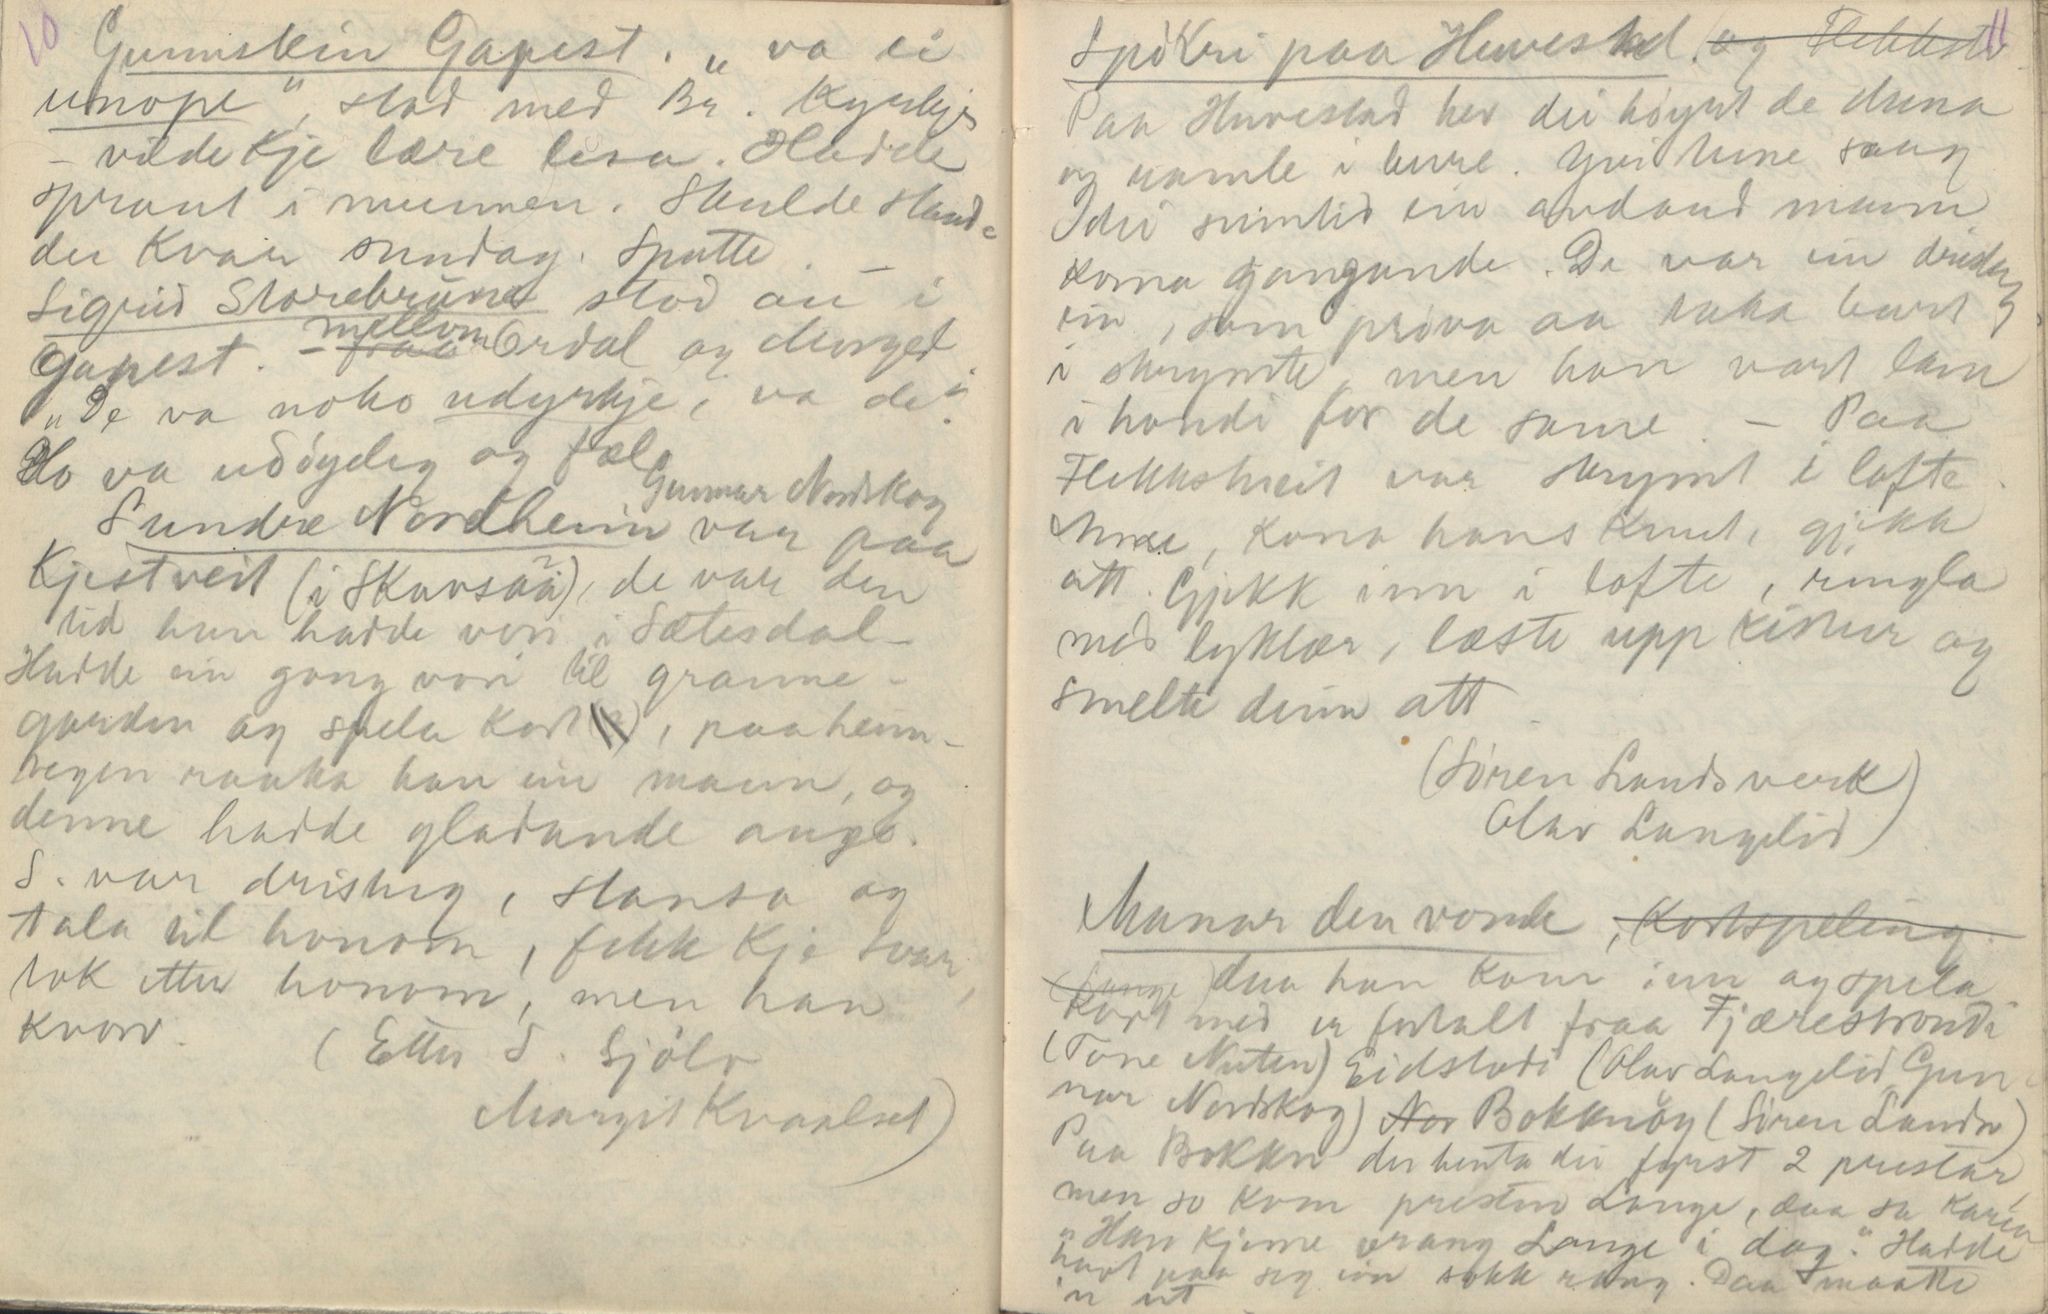 10
Gunnstein Gapest. "va ei
unope", stod med Br. Kyrkje
- vilde kje lære lesa. Hadde
spraut i munnen. Skulde staa
der kvar sundag. Sputte. -
Sigrid Storebrune stod au i
Gapest. - fraa mellom Ordal og Murged
"De va noko udyrkje, va de".
Ho va udøyeleg og fæl.
Gunnar Nordskog
Sundre Nordheim var paa
Kjestveit (i Skavsåå), de var den
tid han hadde vori i Sætesdal -
Hadde ein gong vori til granne-
garden og spela kort, paa heim-
vegen raaka han ein mann, og
denne hadde gladande augo.
S. var dristug, stansa og
tala til honom, fekk kje svar,
tok etter honom, men han
kvarv.
(Etter S. Sjølv
Margit Kvaalset)
11
Spikri paa Huvestad, og Flekkstv
Paa Huvestad hev dei høyrt de duna
og ramle i bure. Yvi tune saag
dei sumtid ein audaud mann
koma gangande. De var ein dreden
ein, som prøva aa taka burt
i skrymte, men han vart lam
i hondi for de same. - Paa
Flekkstveit var skrymt i lofte.
Anne, kona hans Knut, gjekk
att. Gjekk inn i lofte, ringla
med lyklar, læste upp kistur og
smelte deim att.
(Søren Landsverk)
Olav Langelid)
Manar den vonde, Kortspeling.
(Lange) daa han kom inn og spela
kort med er fortalt fraa Fjærestrondi
(Tone Nuten) Eidstodi (Olav Langelid Gun-
nar Nordskog) Nor Bokknøy (Søren Landsv)
Paa Bokkn der henta dei fyrst 2 prestar,
men so kom presten Lange, daa sa karen
"Han kjeme vrang Lange i dag." Hadde
havt paa seg ein sokk rang. Daa maatte
'n ut